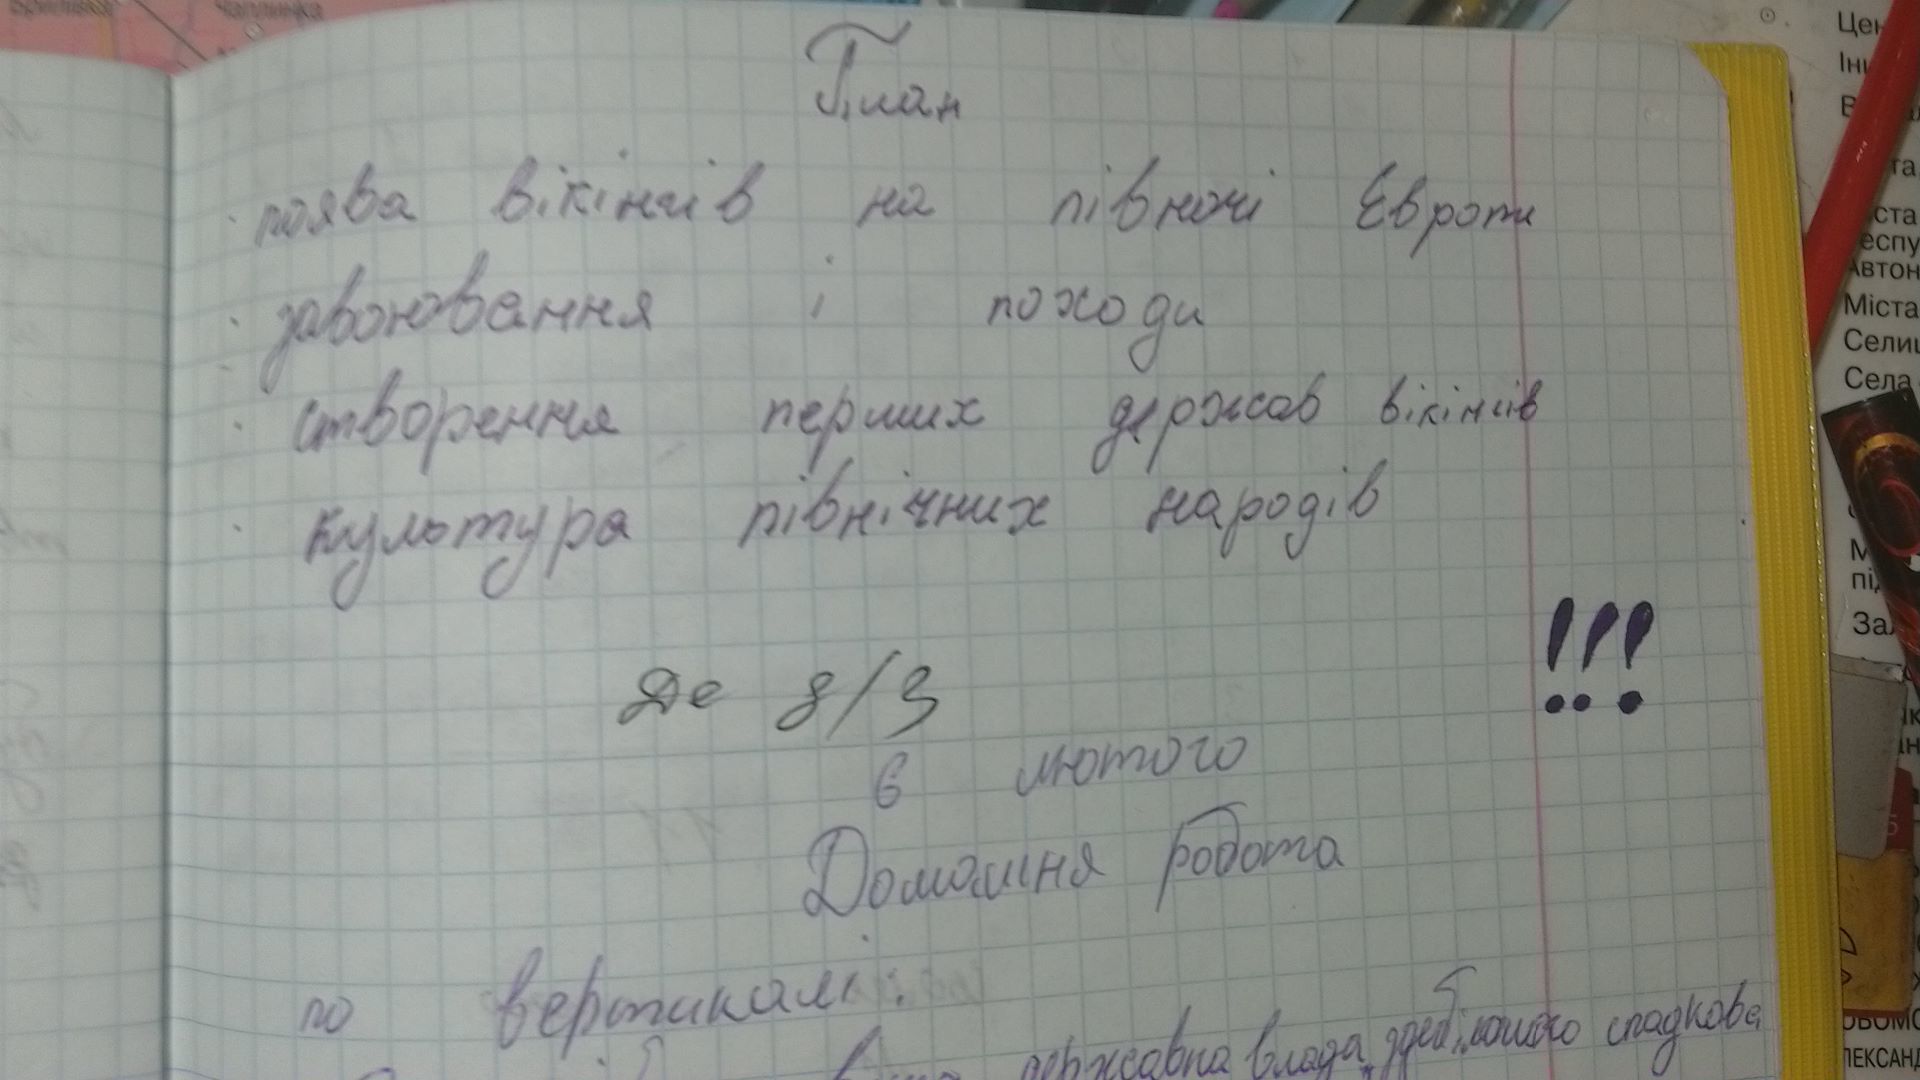 Чаплинка
План
· поява вікінгів на півночі Європи
· завоювання і походи
· створення перших держав вікінгів
· культура північних народів
!!!
Де д/з
6 лютого
Домашня робота
по вертикалі:
державна влада, здебільшого спадкова
Міста
Села